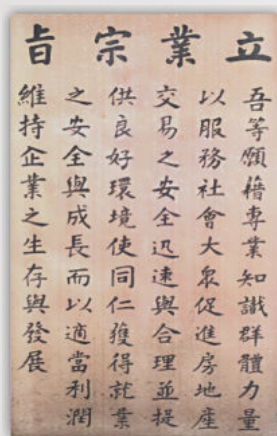 立業宗旨
吾等願藉專業知識群體力量
以服務社會大眾促進房地產
交易之安全迅速與合理並提
供良好環境使同仁獲得就業
之安全與成長而以適當利潤
維持企業之生存與發展